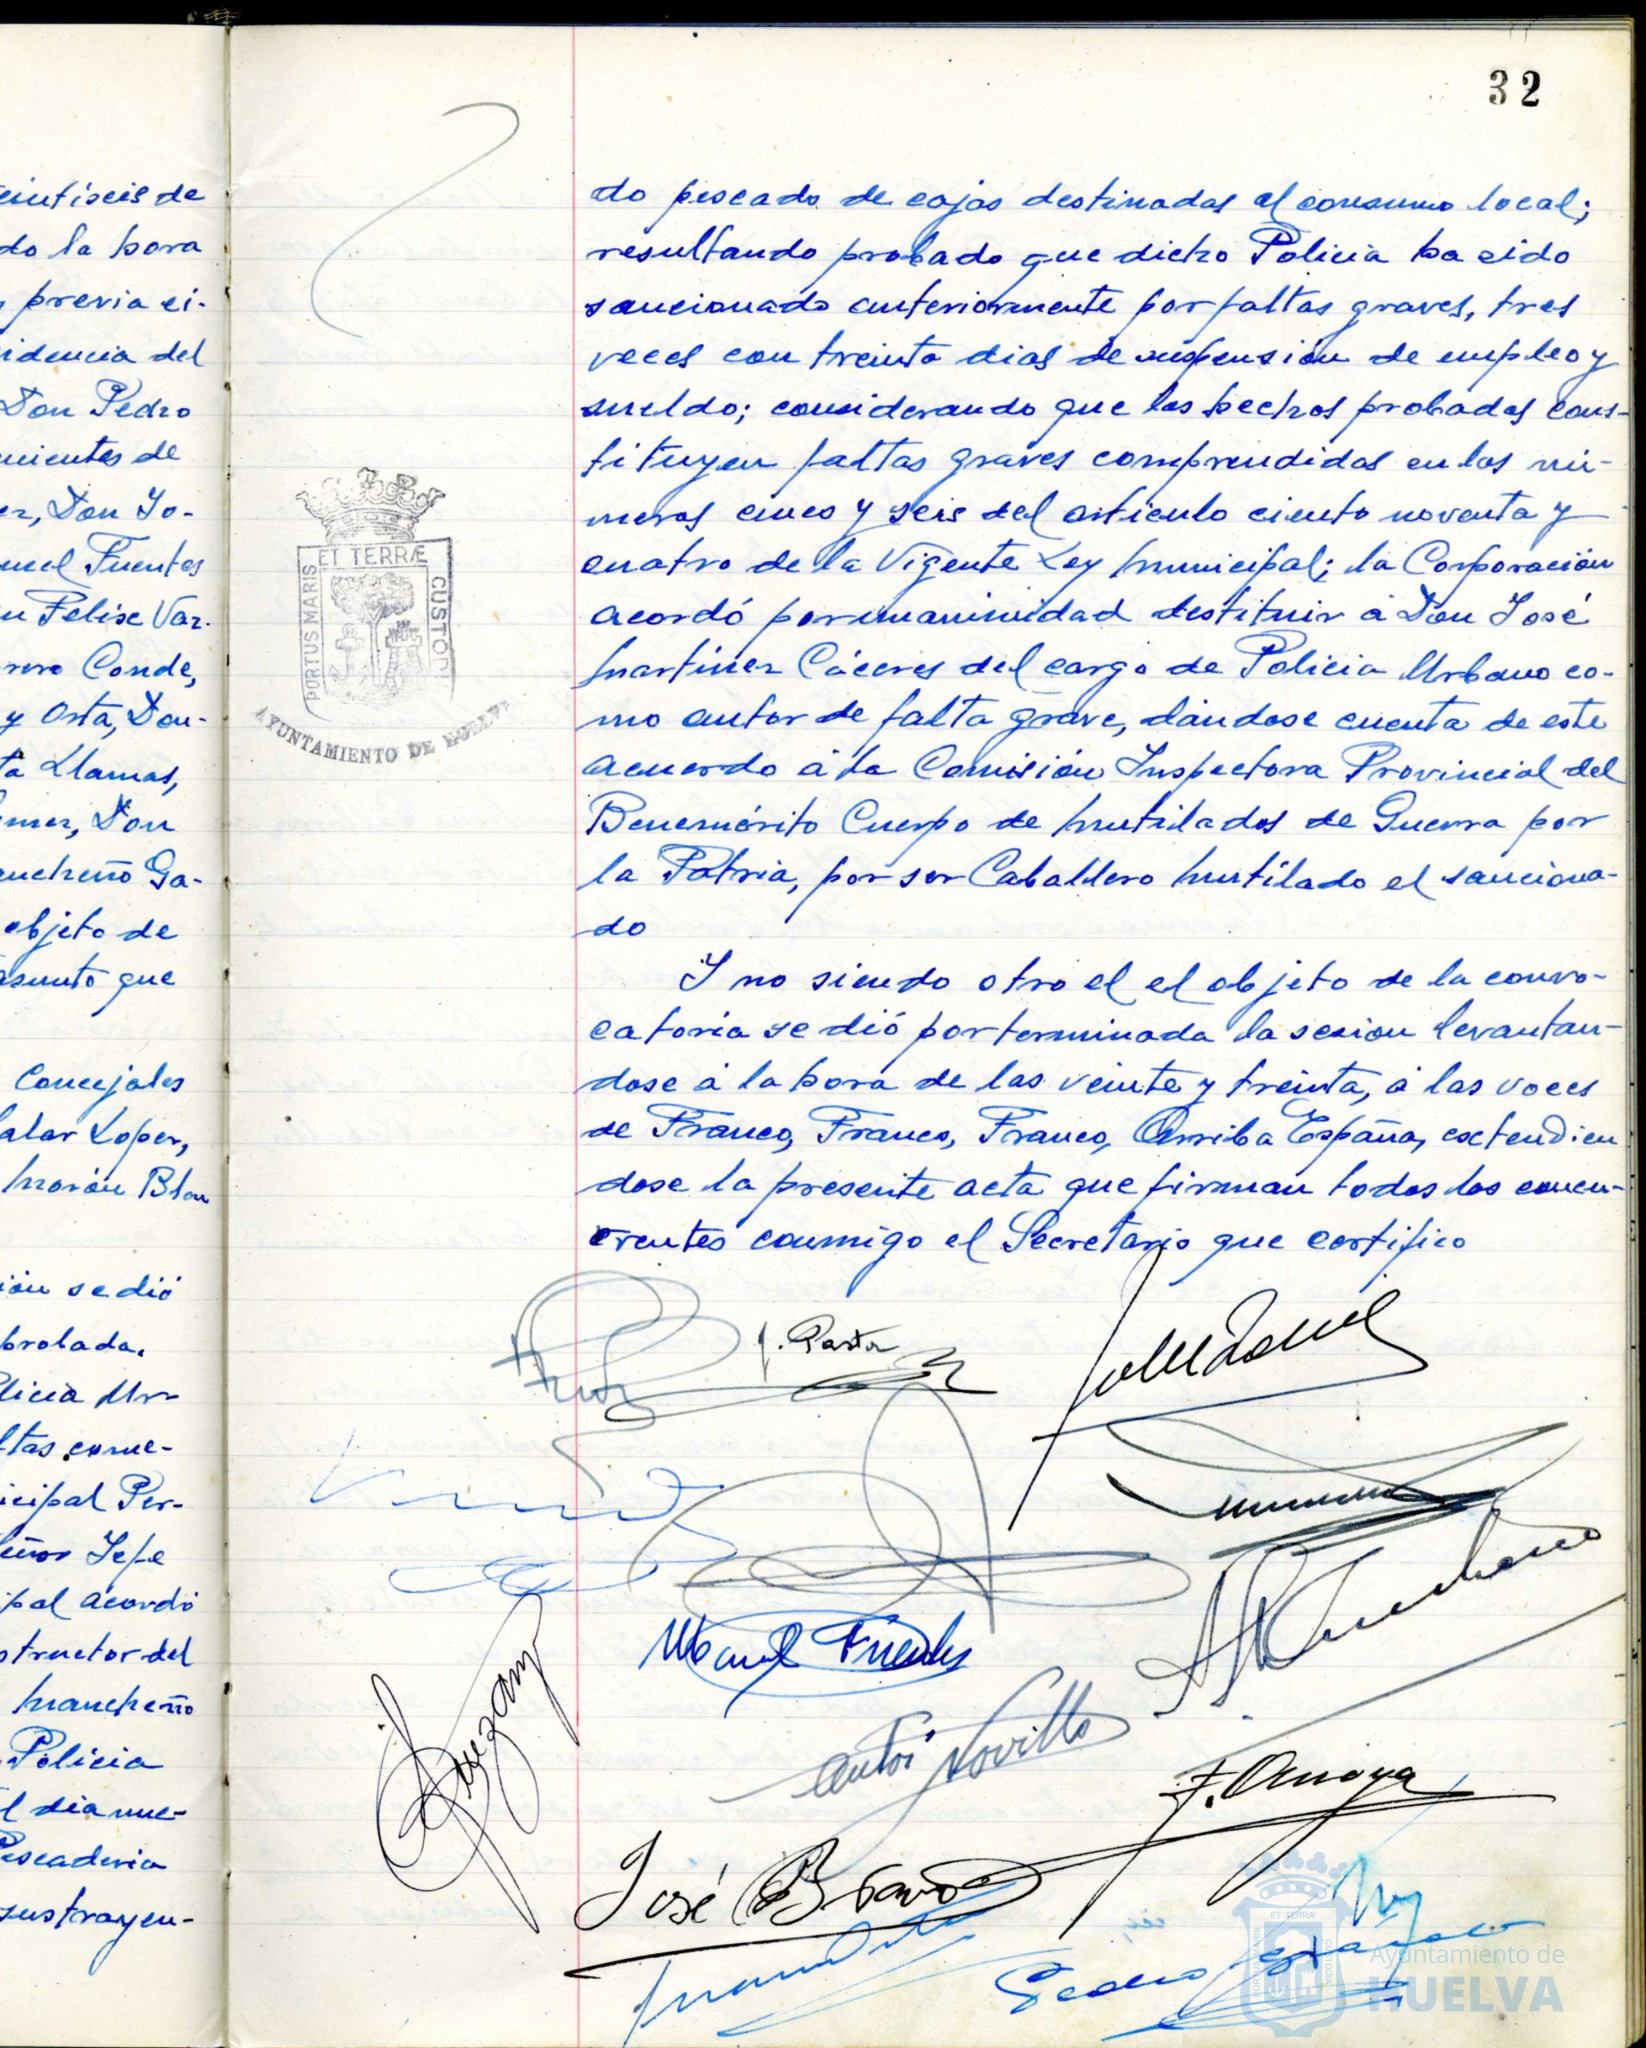 32
eintiseis de
do la hora
previa ci-
idencia del
Don Pedro
nientes de
ez, Don Jo-
uel Fuentes
n Felix Vaz-
rero Conde,
y Orta, Don-
ta Llamas,
mez, Don
ancheño Ga-
objeto de
asunto que
Concejales
alar Lopez,
Morón Blan
ión se dió
probada.
licia Ur-
ltas come-
icipal Per-
eñor Jefe
pal acordó
structor del
Mancheño
Policia
l dia nue-
Pescaderia
sustrayen-
do pescado de cajas destinadas al consumo local;
resultando probado que dicho Policia ha sido
sancionado anteriormente por faltas graves, tres
veces con treinta dias de suspensión de empleo y
sueldo; considerando que los hechos probados cons-
tituyen faltas graves comprendidas en los nú-
meros cinco y seis del articulo ciento noventa y
cuatro de la Vigente Ley Municipal; la Corporación
acordó por unanimidad destituir á Don José
Martínez Cáceres del cargo de Policia Urbano co-
mo autor de falta grave, dándose cuenta de este
acuerdo á la Comisión Inspectora Provincial del
Benemérito Cuerpo de Mutilados de Guerra por
la Patria, por ser Caballero Mutilado el sanciona-
do
Y no siendo otro el el objeto de la convo-
catoria se dió por terminada la sesion levantan-
dose á la hora de las veinte y treinta, á las voces
de Franco, Franco, Franco, Arriba España, extendien
dose la presente acta que firman todos los concu-
rrentes conmigo el Secretario que certifico
PORTUS MARIS ET TERRÆ CUSTODI
AYUNTAMIENTO DE HUELVA
Manuel Fuentes
Novillo
F. Amaya
José Bravo
Pedro
Ayuntamiento de
HUELVA